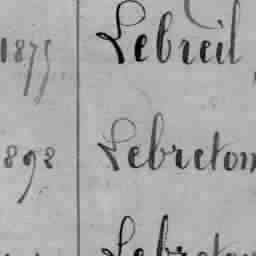 1875 Lebreil,
1892 Lebreton
Lebreton